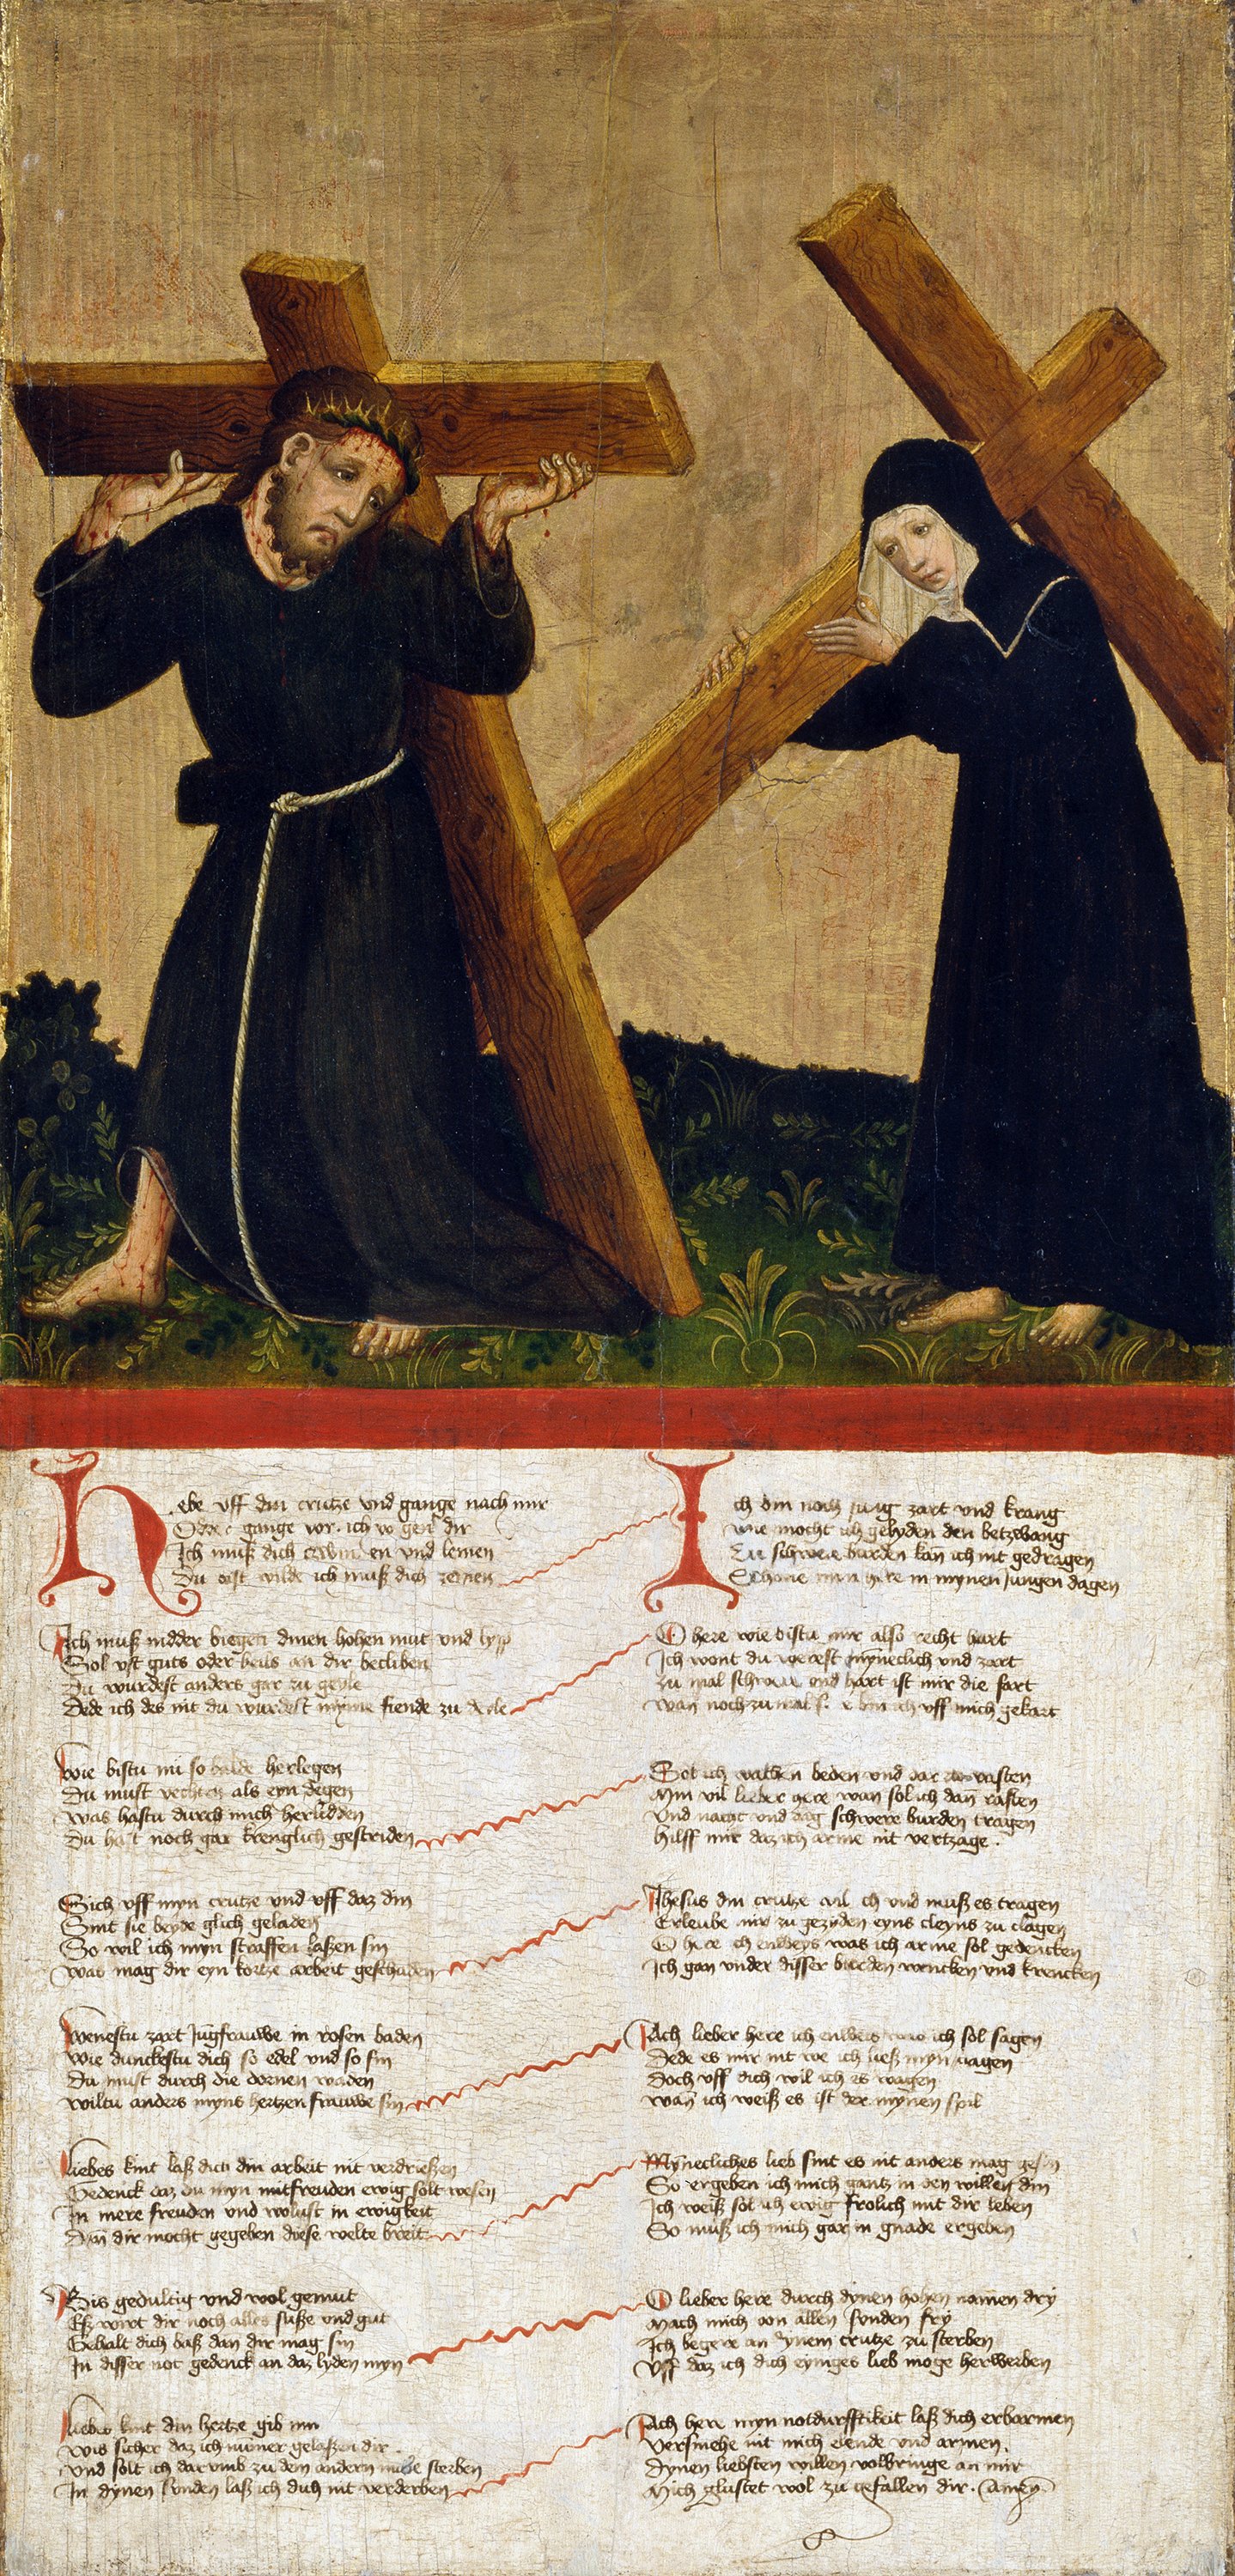 Hebe vff din crutze vnd gange nach mir
Oder gange vor ich dir
Ich muß dich en vnd lemen
Du wilde ich muß dich zemen
Ich muß nidder biegen dinen hohen mut vnd
Sol vst guts oder an dir becliben
Du wurdest anders gar zu geyle
Dede ich des nit du wurdest myme fiende zu deile
Wie bistu mi so balde herlegen
Du must vechten als eyn degen
Was hastu durch mich herlidden
Du hast noch gar krenglich gestriden
Sich vff myn crutze vnd vff daz din
Sint sie beyde glich geladen
So wil ich myn straffen laßen sin
Waz mag dir eyn kortze arbeit geschaden
Wenestu zart Jungfrauwe in rosen baden
Wie dunckestu dich so edel vnd so fin
Du must durch die dornen waden
Wiltu anders myns hertzen frauwe sin
Liebes kint laß dich din arbeit nit verdrießen
Gedenck daz du myn mitfreuden ewig solt wesen
In mere freuden vnd wolust in ewigkeit
Dan dir mocht gegeben diese welte breit
Bis gedultig vnd wol gemut
Eß wirt dir noch alles suße vnd gut
Gehalt dich baß dan dir mag sin
In disser not gedenck an daz lyden myn
Liebes kint din hertze gib mir
Wis sicher daz ich nimer gelaßen dir
Vnd solt ich darvmb zu dem andern male sterben
In dynen sunden laß ich dich nit verderben
Ich bin noch jung zart vnd krang
Wie mocht ich gelyden den betzwang
burden kan ich nit gedragen
Schone myn here in mynen Jungen dagen
O here wie bistu mir also recht hart
Ich wont du werest mynneclich vnd zart
Zu mal schwere vnd hart ist mir die fart
Wan noch zu mal ich vff mich gekart
Sol ich wachen beden vnd dar zu vasten
Min vil lieber here wan sol ich dan rasten
Vnd nacht vnd dag schwere burden tragen
Hilff mir daz ich arme nit vertzage.
Jhesus din crutze wil ich vnd muß es tragen
Erleube mir zu gezyden eyns cleyns zu clagen
O here ich enweys was ich arme sol gedencken
Ich gan vnder disser burden wencken vnd krencken
Ach lieber here ich enweis wie ich sol sagen
Dede es mir nit we ich ließ myn clagen
Doch vff dich wil ich es wagen
Wan ich weiß es ist der mynen spil
Mynecliches lieb sint es nit anders mag gesin
So ergeben ich mich gantz in den willen din
Ich weiß sol ich ewig frolich mit dir leben
So muß ich mich gar in gnade ergeben
O lieber here durch dynen hohen namen dry
Mach mich von allen sunden fry
Ich begere an dynem crutze zu sterben
Vff daz ich dich eyniges lieb moge herwerben
Ach here myn notdurfftikeit laß dich erbarmen
Versmehe nit mich elende vnd armen.
Dynen liebsten willen volbringe an mir
Mich glustet wol zu gefallen dir. Amen